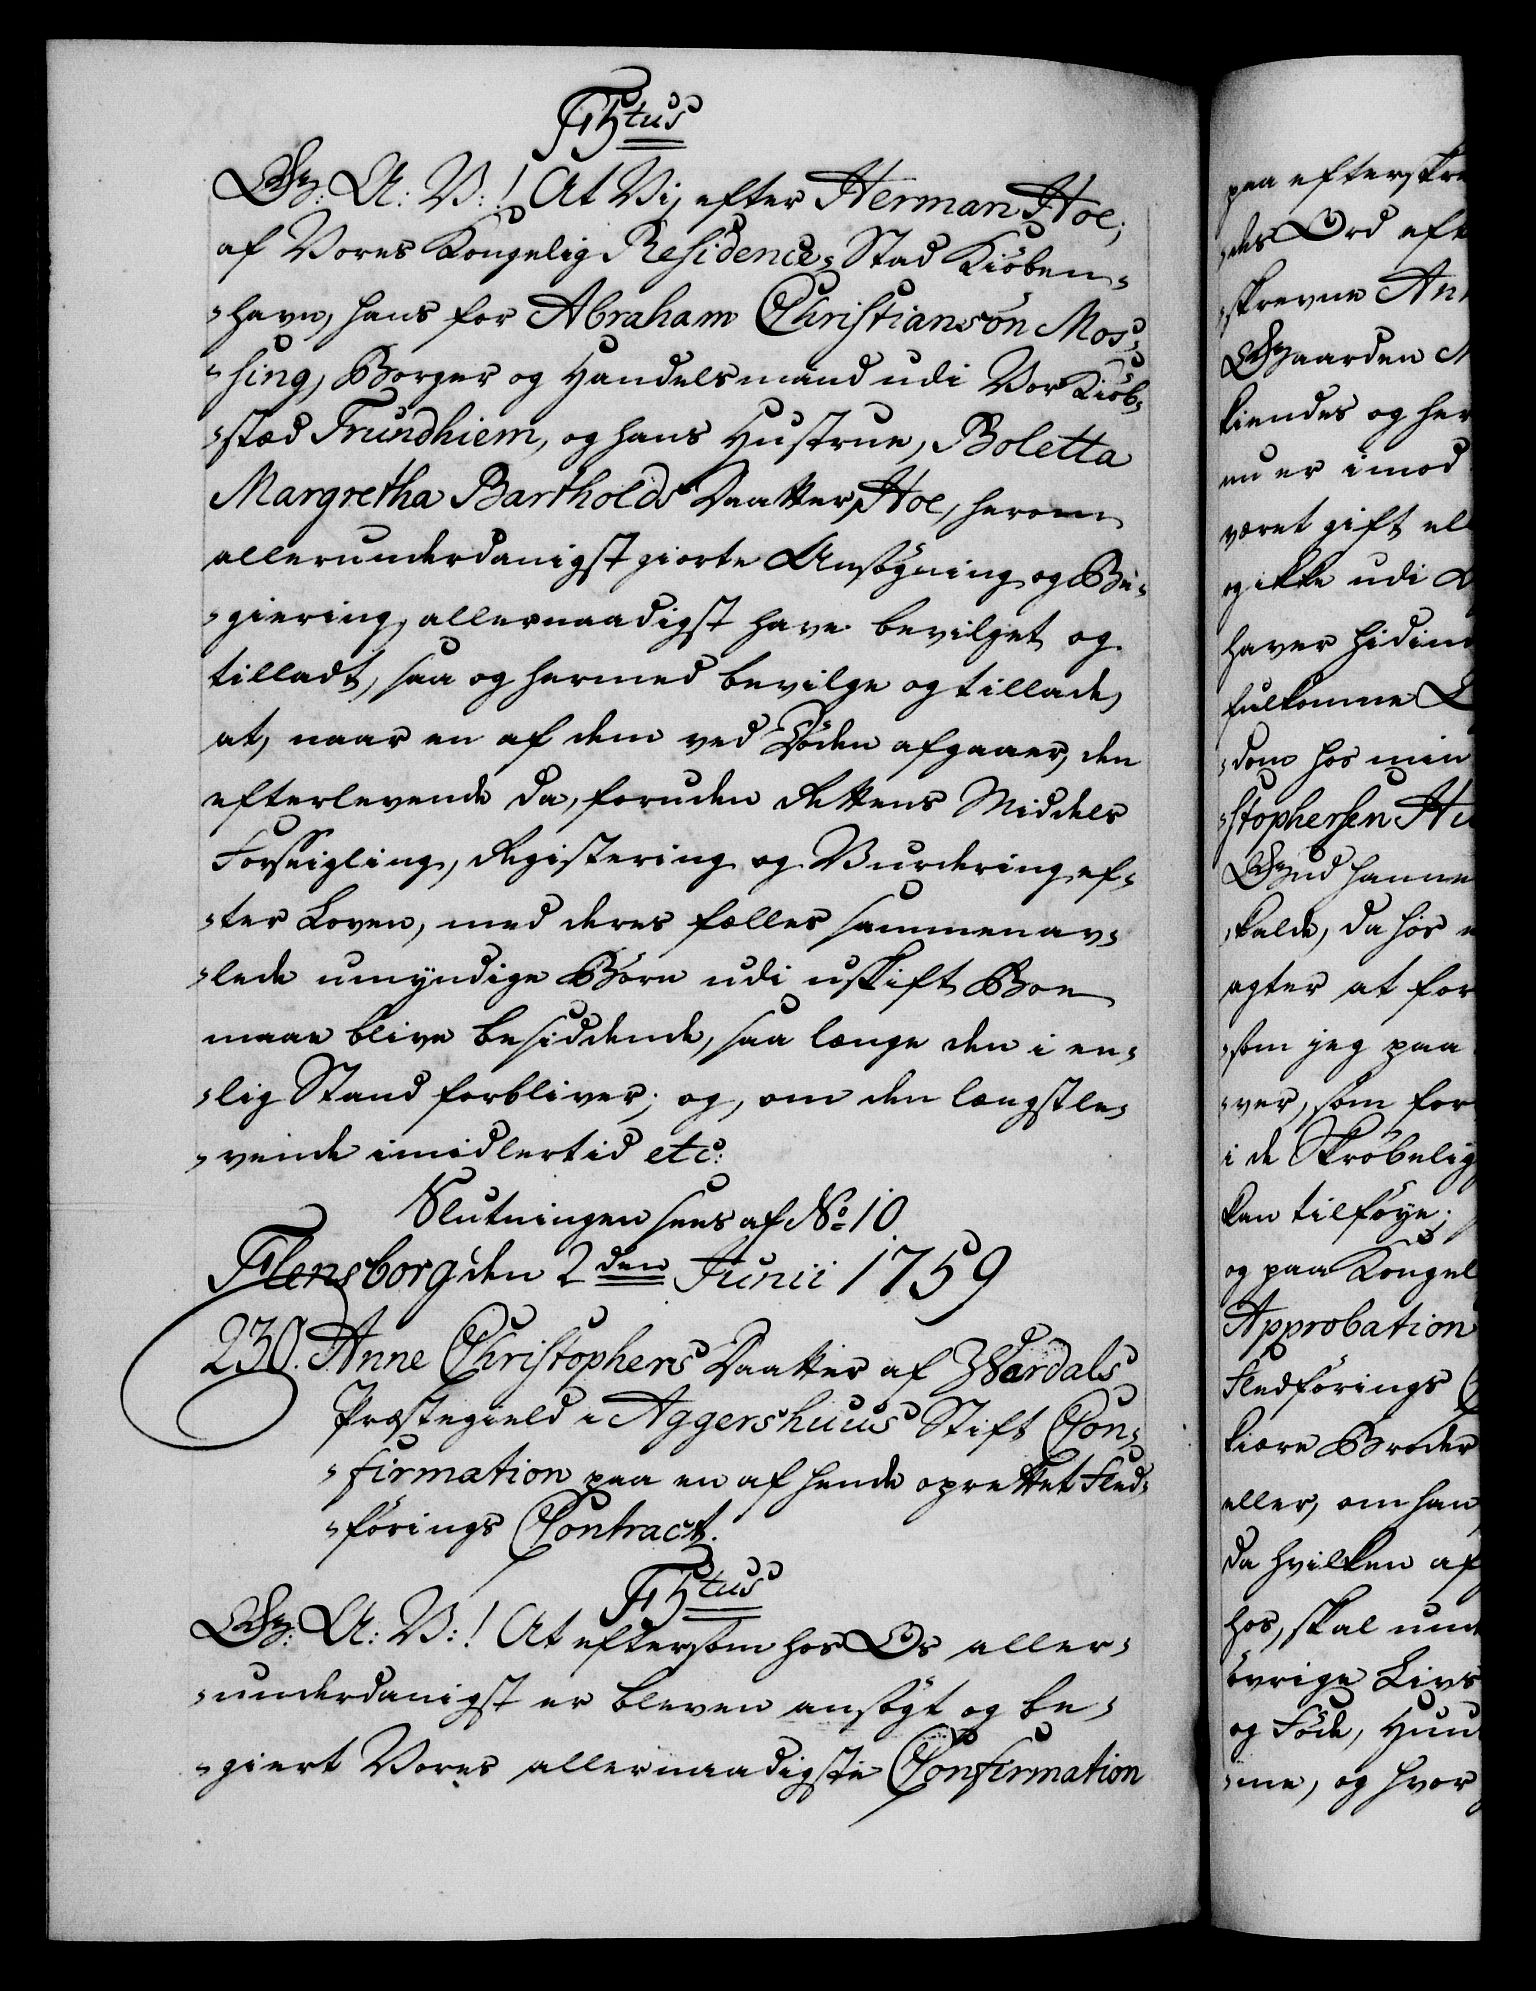 F5tus
G: A: V:! At Vi, efter Herman Hoe,
af Vores Kongelig Residence-Stad Kiöben-
-havn, hans for Abraham Christiansön Mos-
-sing, Borger og Handelsmand udi Vor Kiöb-
-stæd Trundhiem, og hans Hustrue, Boletta
Margretha Bartholds Daatter Hoe, herom
allerunderdanigst giorte Ansögning og Be-
-giering, allernaadigst have bevilget og
tilladt, saa og hermed bevilge og tillade,
at, naar en af dem ved Döden afgaaer, den
efterlevende da, foruden Rettens Middels
Forseigling, Registering og Vurdering ef-
-ter Loven, med deres fælles sammenav-
-lede umyndige Börn udi uskift Boe
maae blive besiddende, saa længe den i en-
-lig Stand forbliver; og, om den længstle-
-vende imidlertid etc:
Slutningen sees af No 10
Flensborg den 2den Junii 1759
230. Anne Christophers Daatter af Wardals
Præstegield i Aggershuus Stift Con-
-firmation paa en af hende oprettet Fled-
-förings Contract.
F5tus
G: A: V:! At eftersom hos Os aller-
-underdanigst er bleven ansögt og be-
-giert Vores allernaadigste Confirmation
paa efterskre
-des Ord eft
-skrevne An
Gaarden
kiendes og her
nu er imod
været gift el
og ikke udi
haver hidin
fuldkomne
-dom hos min
-stophersen
Gud hanne
-kalde, da hos
agter at for
-som jeg paa
-ver, som for
i de Skröbelig
kan tilföye;
og paa Kongel
Approbation
Fledförings
kiære Broder
eller, om han
da hvilken af
hos, skal und
övrige Livs
og Föde, Huu
-me, og hvor